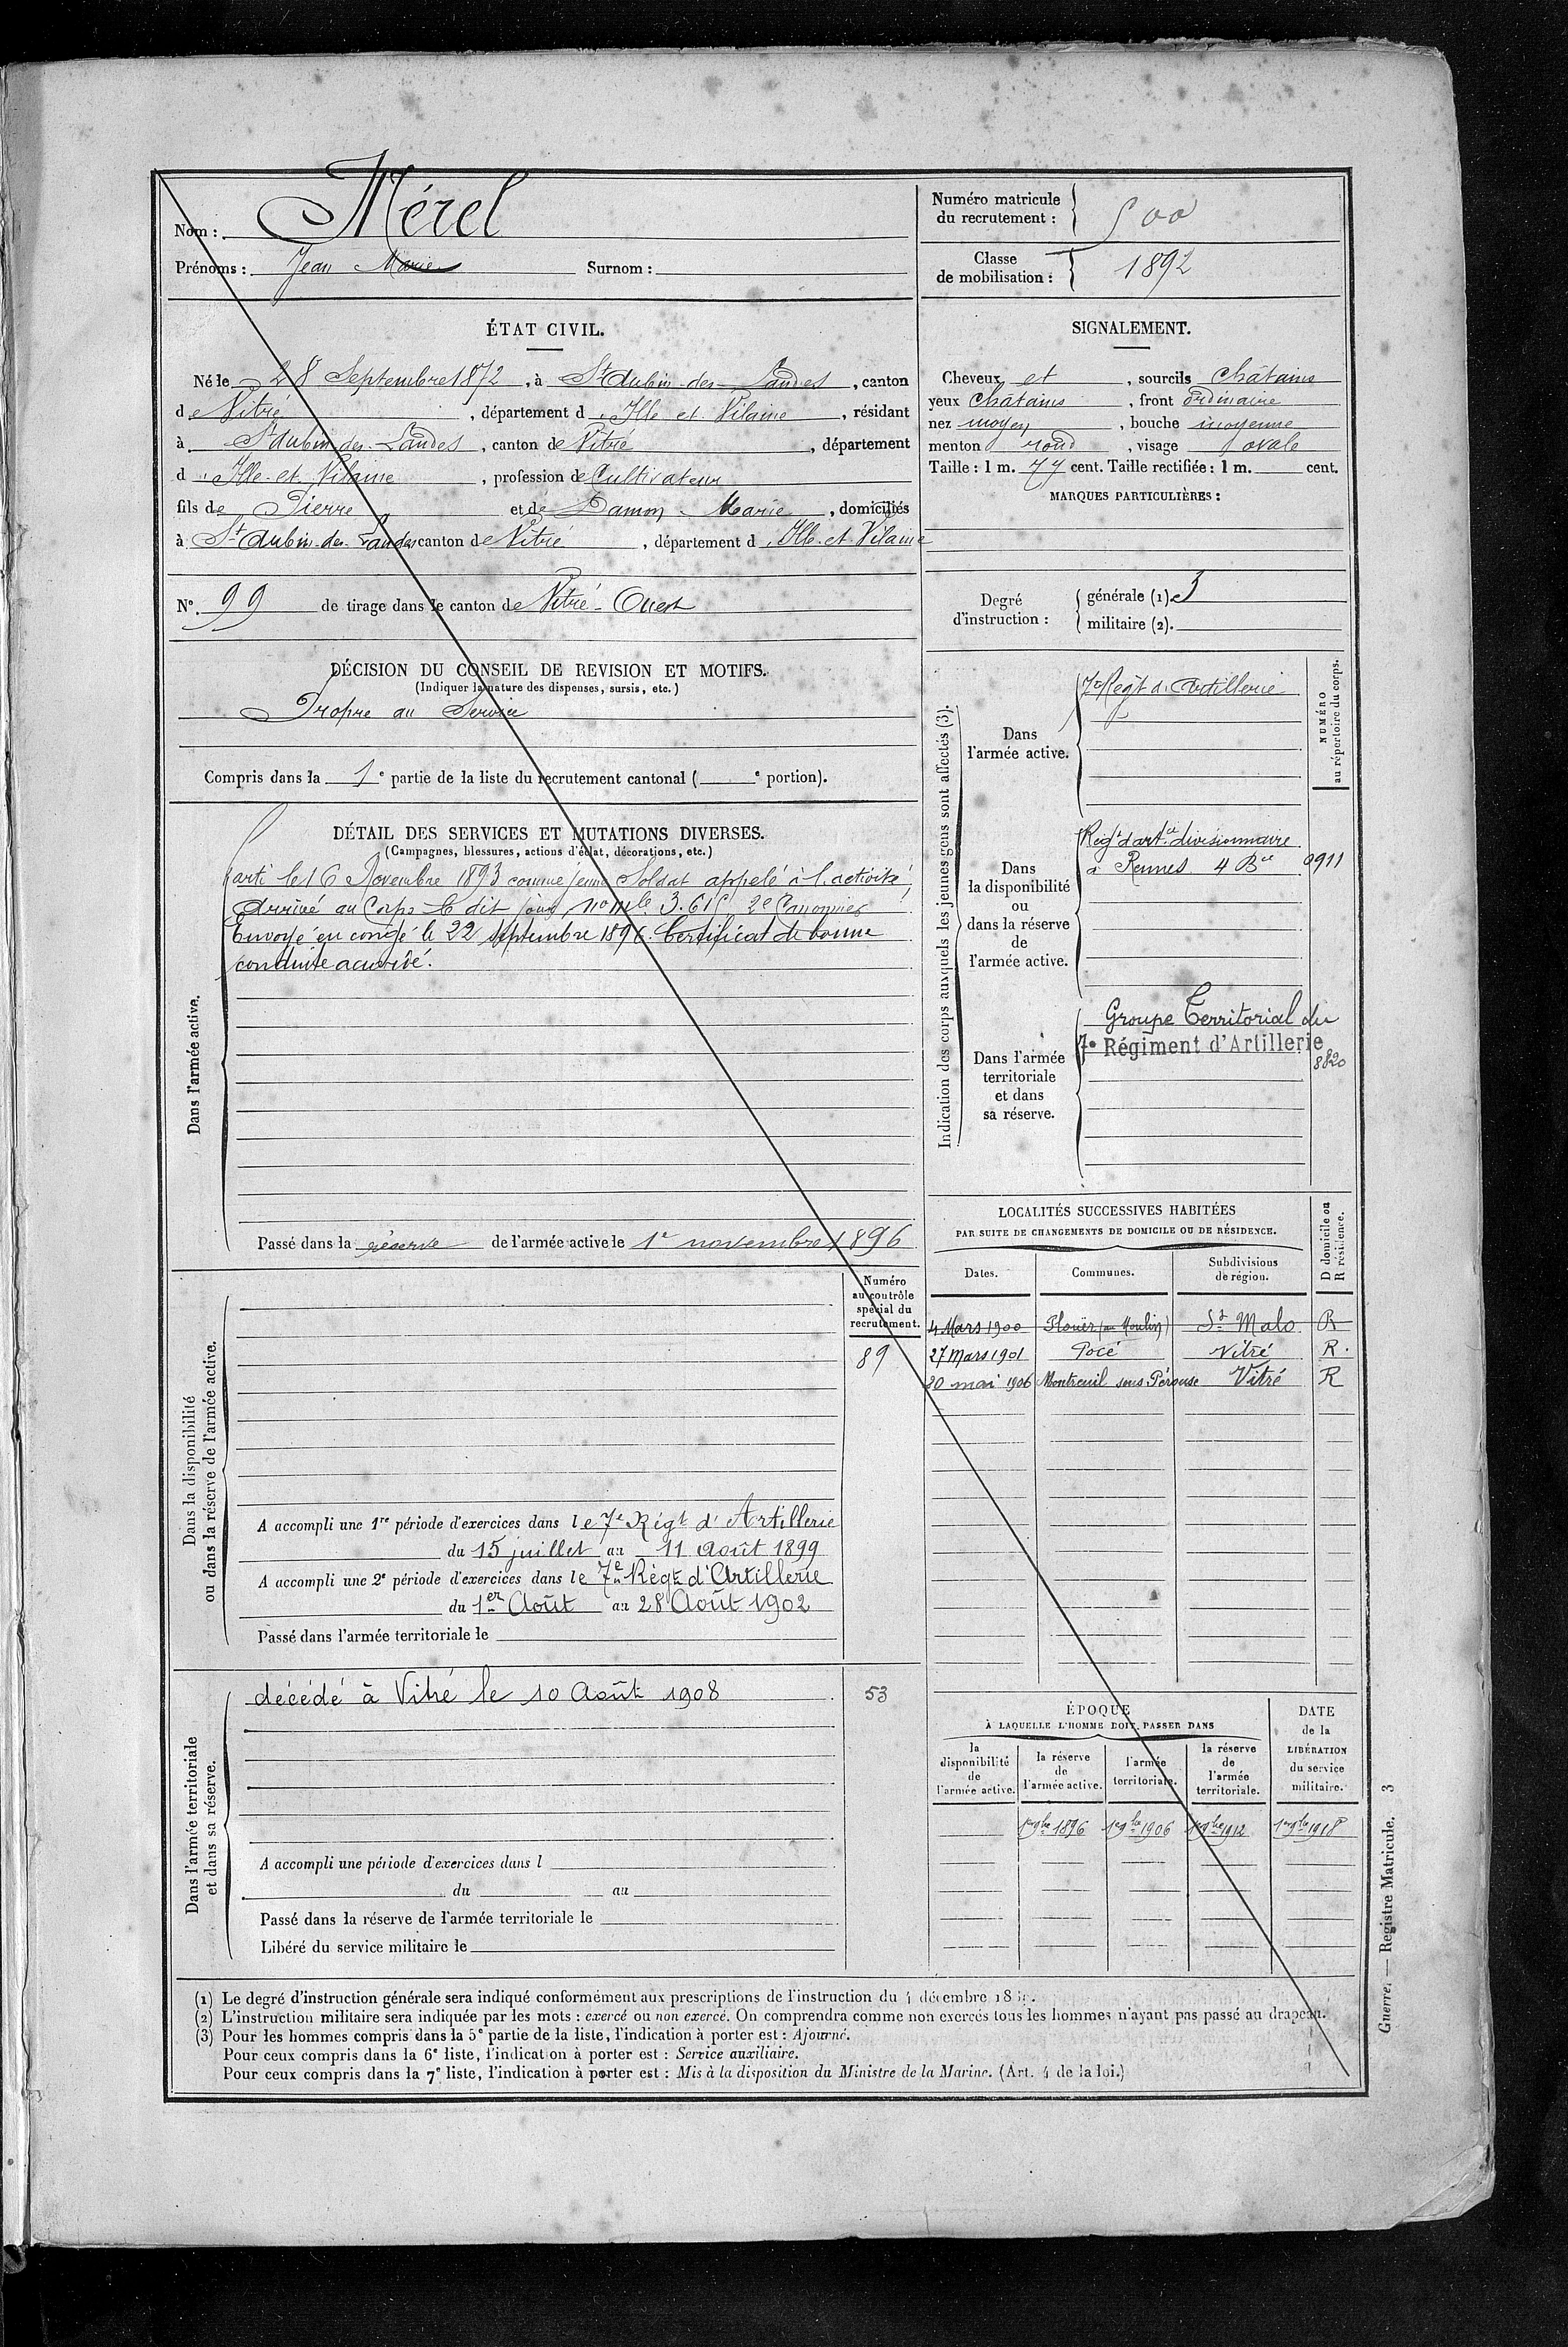 Nom : Mérel
Prénoms : Jean Marie Surnom :
Numéro matricule du recrutement : 500
Classe de mobilisation : 1892
ÉTAT CIVIL.
Né le 28 Septembre 1872, à St Aubin-des-Landes, canton
de Vitré, département d'Ille et Vilaine, résidant
à St Aubin-des-Landes, canton de Vitré, département
d'Ille-et-Vilaine, profession de Cultivateur
fils de Pierre et de Damon Marie, domiciliés
à St Aubin-des-Landes canton de Vitré, département d'Ille-et-Vilaine
N°. 99 de tirage dans le canton de Vitré-Ouest
SIGNALEMENT.
Cheveux et, sourcils châtains
yeux châtains, front ordinaire
nez moyen, bouche moyenne
menton rond, visage ovale
Taille : 1 m. 77 cent. Taille rectifiée : 1 m. cent.
MARQUES PARTICULIÈRES :
Degré d'instruction : générale (1). 3
militaire (2).
DÉCISION DU CONSEIL DE REVISION ET MOTIFS.
(Indiquer la nature des dispenses, sursis, etc.)
Propre au Service
Compris dans la 1e partie de la liste du recrutement cantonal ( e portion).
DÉTAIL DES SERVICES ET MUTATIONS DIVERSES.
(Campagnes, blessures, actions d'éclat, décorations, etc.)
Dans l'armée active.
Parti le 16 Novembre 1893 comme jeune Soldat appelé à l'activité,
Arrivé au Corps le dit jour, no mle 3.615 2e Canonnier
Envoyé en congé le 22 septembre 1896. Certificat de bonne
conduite accordé.
Passé dans la réserve de l'armée active le 1er novembre 1896
Indication des corps auxquels les jeunes gens sont affectés (3).
NUMÉRO au répertoire du corps.
Dans l'armée active.
7e Regt d'Artillerie
Dans la disponibilité ou dans la réserve de l'armée active.
Régt d'artie divisionnaire
à Rennes 4 Bie 0911
Dans l'armée territoriale et dans sa réserve.
Groupe Territorial du
7e Régiment d'Artillerie
8820
LOCALITÉS SUCCESSIVES HABITÉES
PAR SUITE DE CHANGEMENTS DE DOMICILE OU DE RÉSIDENCE.
D domicile ou R résidence.
Dates. Communes. Subdivisions de région.
4 Mars 1900 Plouër (au Moulin) St Malo R
27 Mars 1901 Pocé Vitré R.
20 mai 1906 Montreuil sous Pérouse Vitré R
Dans la disponibilité ou dans la réserve de l'armée active.
Numéro au contrôle spécial du recrutement.
89
A accompli une 1re période d'exercices dans le 7e Régt d'Artillerie
du 15 juillet au 11 Août 1899
A accompli une 2e période d'exercices dans le 7e Régt d'Artillerie
du 1er Août au 28 Août 1902
Passé dans l'armée territoriale le
Dans l'armée territoriale et dans sa réserve.
décédé à Vitré le 10 Août 1908
53
A accompli une période d'exercices dans l
du au
Passé dans la réserve de l'armée territoriale le
Libéré du service militaire le
ÉPOQUE
À LAQUELLE L'HOMME DOIT PASSER DANS
la disponibilité de l'armée active. la réserve de l'armée active. l'armée territoriale. la réserve de l'armée territoriale.
DATE de la LIBÉRATION du service militaire.
1er 9bre 1896 1er 9bre 1906 1er 9bre 1912 1er 9bre 1918
(1) Le degré d'instruction générale sera indiqué conformément aux prescriptions de l'instruction du 4 décembre 18
(2) L'instruction militaire sera indiquée par les mots : exercé ou non exercé. On comprendra comme non exercés tous les hommes n'ayant pas passé au drapeau.
(3) Pour les hommes compris dans la 5e partie de la liste, l'indication à porter est : Ajourné.
Pour ceux compris dans la 6e liste, l'indication à porter est : Service auxiliaire.
Pour ceux compris dans la 7e liste, l'indication à porter est : Mis à la disposition du Ministre de la Marine. (Art. 4 de la loi.)
Guerre. — Registre Matricule. 3